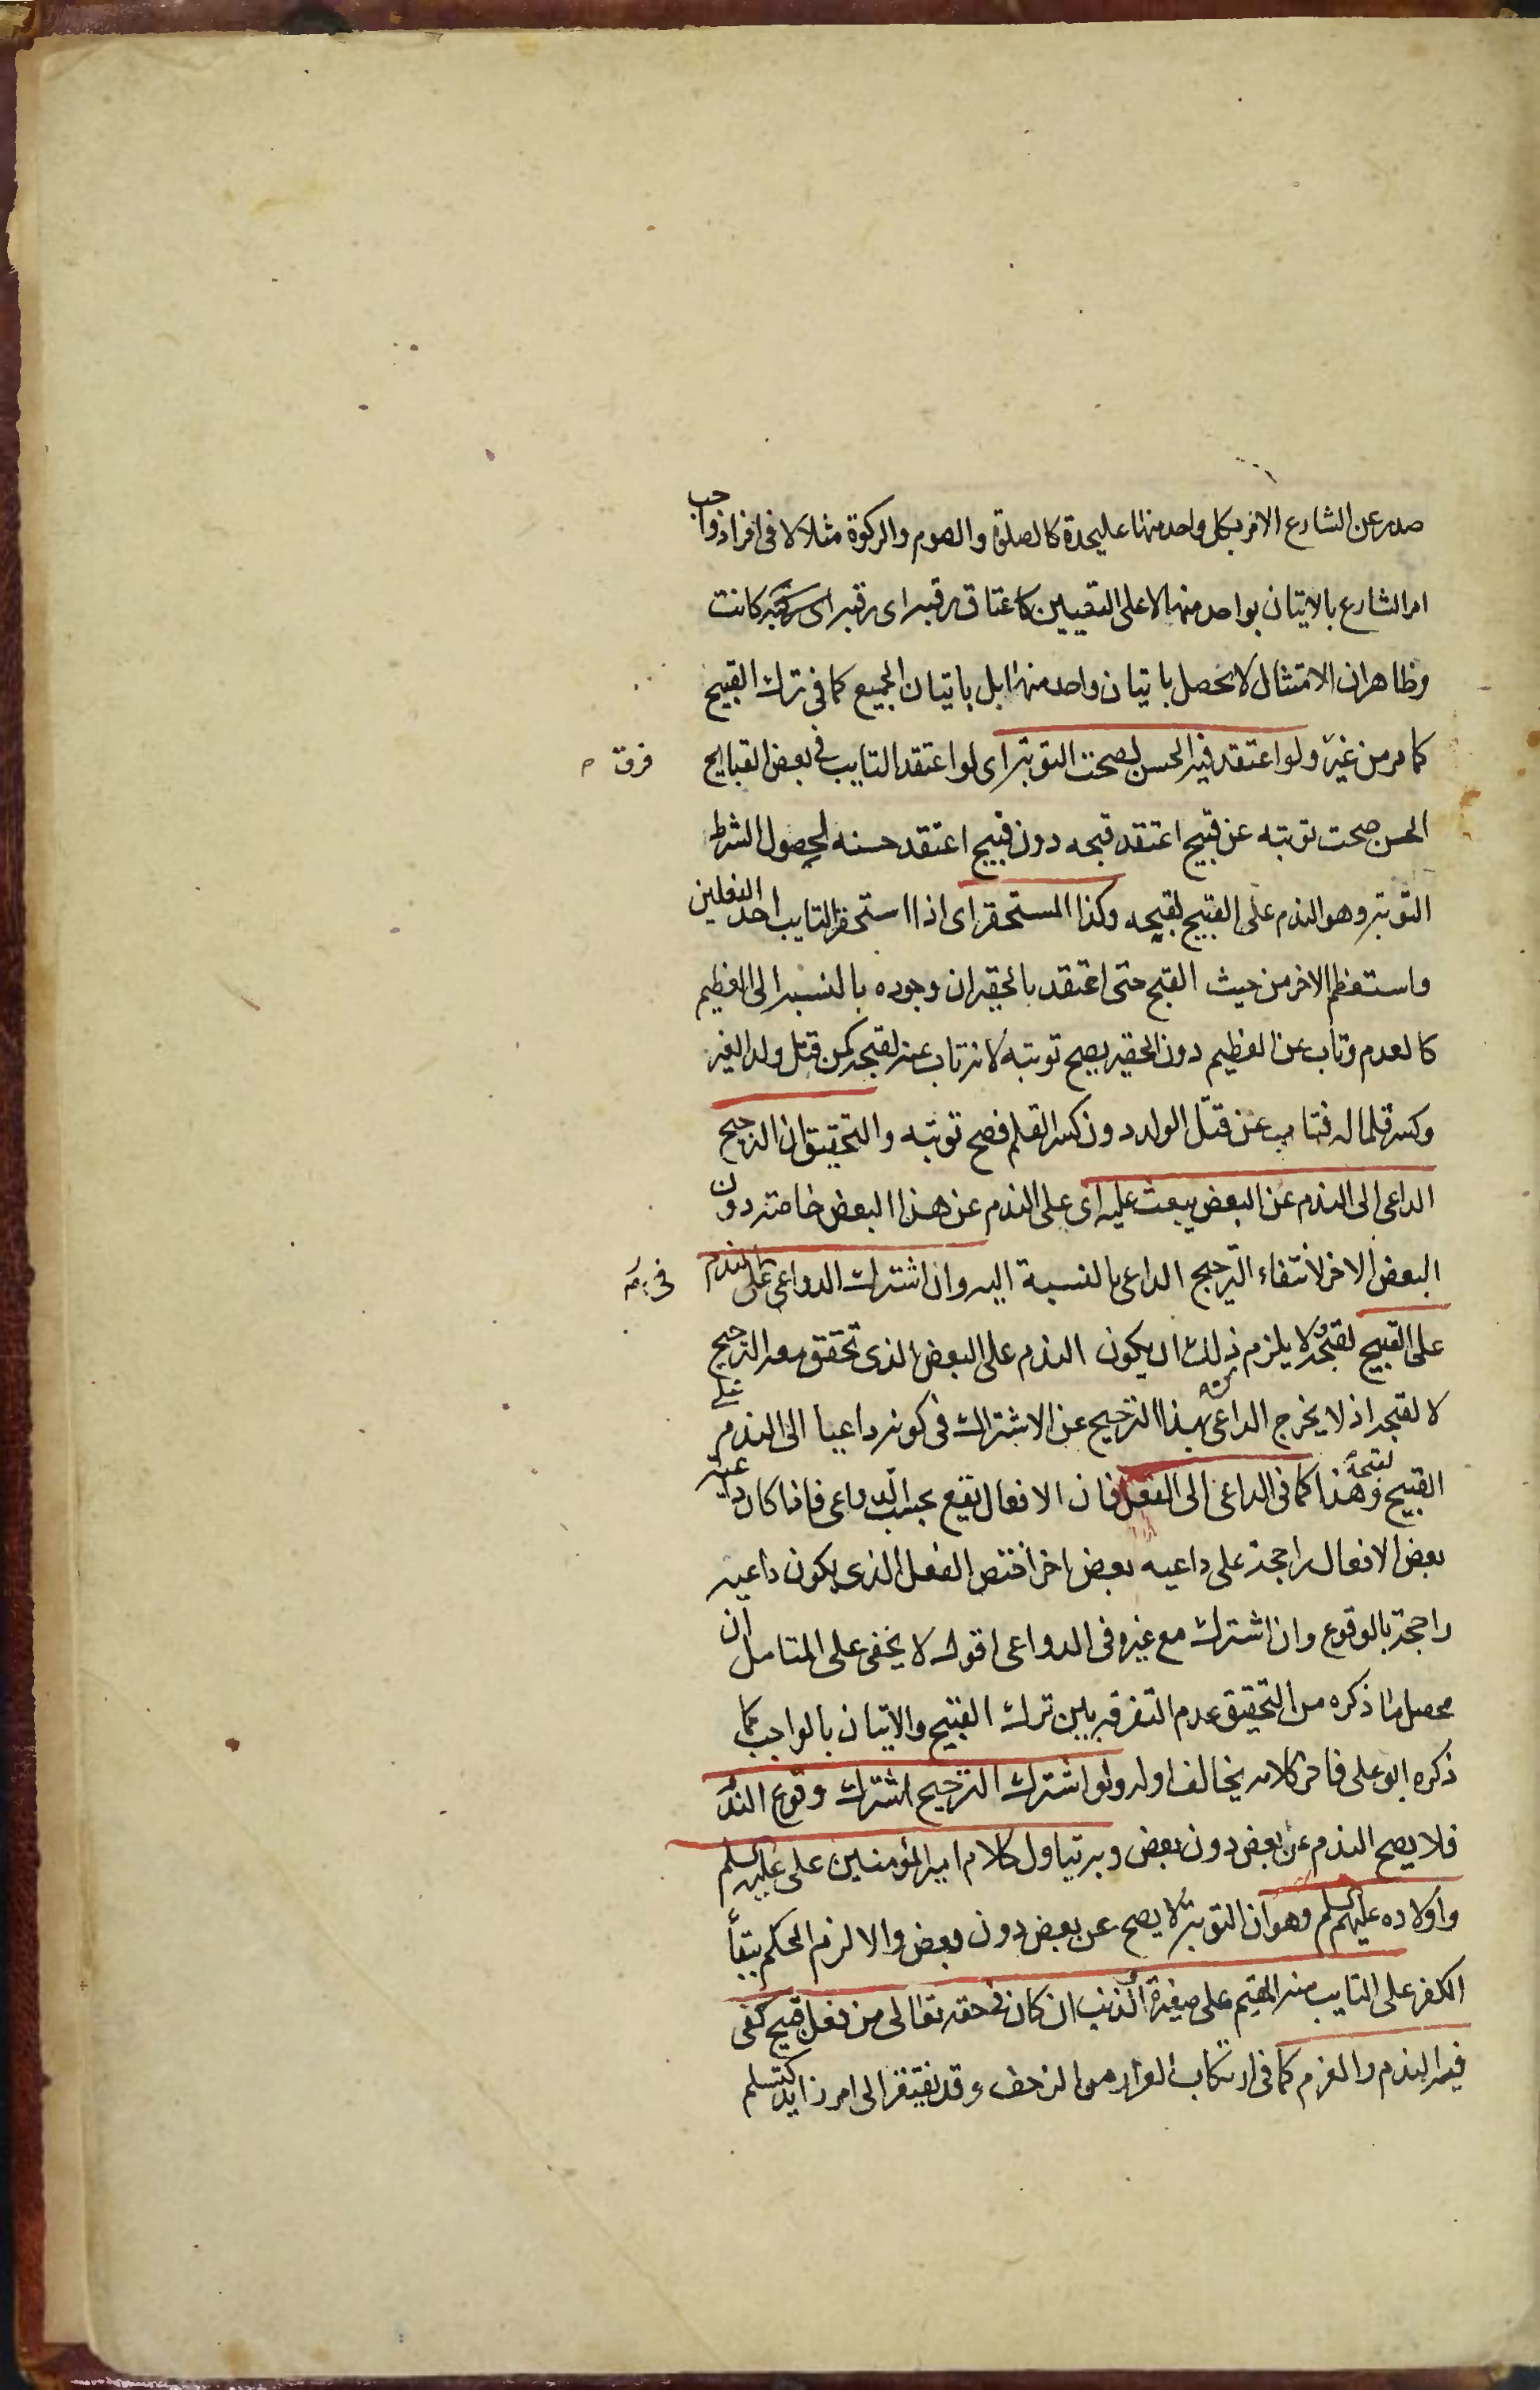 صدر عن الشارع الامر بكل واحد منها عليحدة كالصلوة والصوم والزكوة مثلا لا فى افراد واجب
امر الشارع بالاتيان بواحد منها لا على التعيين كاعتاق رقبه اى رقبه اى رقبة كانت
وظاهر ان الامتثال لا يحصل باتيان واحد منها بل باتيان الجميع كما فى ترك القبيح
كما مر من غير ولو اعتقد فيه الحسن لصحت التوبة اى لو اعتقد التايب فى بعض القبايح
فرق
الحسن صحت توبته عن قبيح اعتقد قبحه دون قبيح اعتقد حسنه لحصول الشرط
التوبة وهو الندم على القبيح لقبحه وكذا المستحقر اى اذا استحقر التايب احد الفعلين
واستعظم الاخر من حيث القبح حتى اعتقد بالحقير ان وجوده بالنسبه الى العظيم
كالعدم وتاب عن العظيم دون الحقير يصح توبته لانه تاب عنه لقبحه كمن قتل ولد الغير
وكسر قلما له فتاب عن قتل الولد دون كسر القلم فصح توبته والتحقيق ان الترجيح
الداعى الى الندم عن البعض يبعث عليه اى على الندم عن هذا البعض خاصة دون
البعض الاخر لانتفاء الترجيح الداعى بالنسبة اليه وان اشترك الدواعى على الندم
على القبيح لقبحه ولا يلزم ذلك ان يكون الندم على البعض الذى تحقق معه الترجيح
لا لقبحه اذ لا يخرج الداعى بهذا الترجيح عن الاشتراك فى كونه داعيا الى الندم على
القبيح لقبحه وهذا كما فى الداعى الى الفعل فان الافعال تقع بحسب الدواعى فاذا كان داعية
بعض الافعال راجحة على داعيه بعض اخر اختص الفعل الذى يكون داعيه
راجحة بالوقوع وان اشترك مع غيره فى الدواعى اقول لا يخفى على المتامل ان
محصل ما ذكره من التحقيق عدم التفرقه بين ترك القبيح والاتيان بالواجب كما
ذكره ابو على فاخر كلامه يخالف اوله ولو اشترك الترجيح اشترك وقوع الندم
فلا يصح الندم عن بعض دون بعض وبه يتاول كلام امير المؤمنين على عليه السلم
واولاده عليهم السلم وهو ان التوبة لا يصح عن بعض دون بعض والا لزم الحكم ببقاء
الكفر على التايب منه المقيم على صغيرة الذنب ان كان فى حقه تعالى من فعل قبيح كفى
فيه الندم والعزم كما فى ارتكاب الفرار من الزحف وقد يفتقر الى امر زايد كتسلم